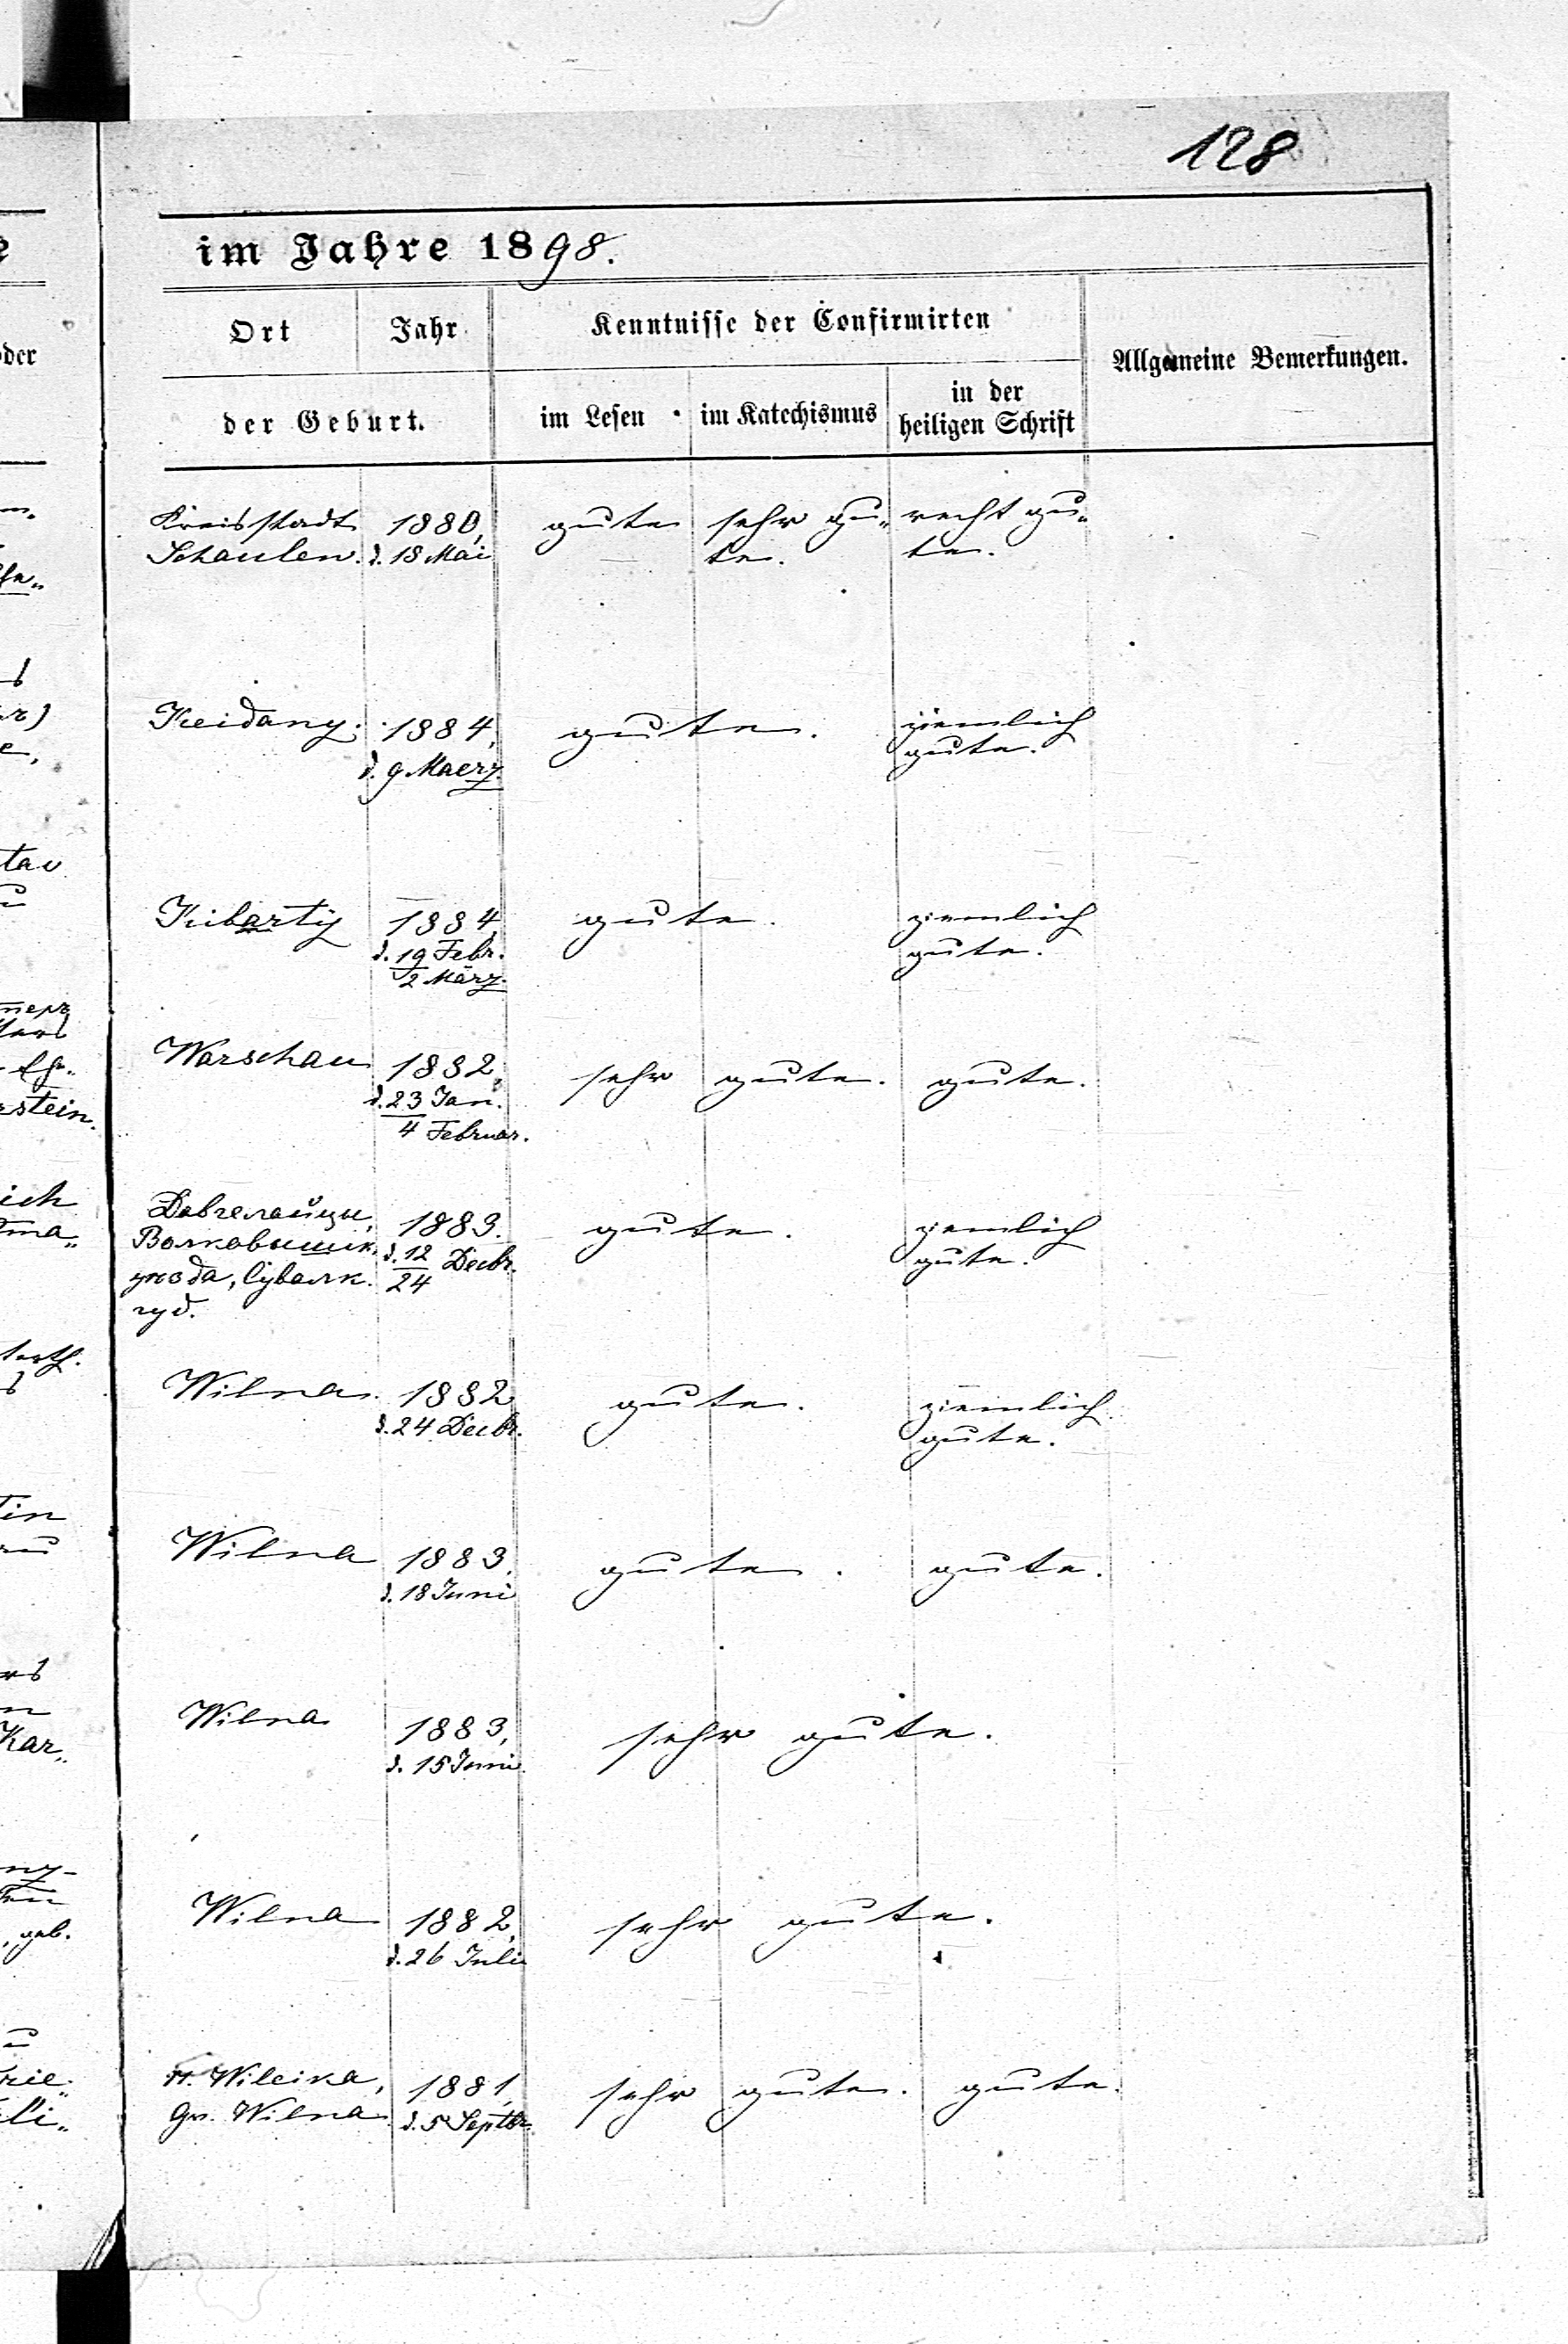 128
im Jahre 1898.
Ort Jahr Kenntnisse der Confirmirten
Allgemeine Bemerkungen.
der Geburt. im Lesen im Katechismus in der
heiligen Schrift
Kreisstadt 1880, gute sehr gu„ recht gu„
Schaulen. d. 18 Mai te. te.
Keidany. 1884, gute. ziemlich
d. 9 Maerz gute.
Kibarty 1884, gute. ziemlich
d. 19 Febr. gute.
2 März.
Warschau 1882, sehr gute. gute.
d. 23 Jan.
4 Februar.
1883. gute. ziemlich
Волковышк. d. 12 Decbr. gute.
уѣзда, Сувалк. 24
губ.
Wilna. 1882 gute. ziemlich
d. 24 Decbr. gute.
Wilna 1883, gute. gute.
d. 18 Juni
Wilna 1883, sehr gute.
d. 15 Juni
Wilna 1882, sehr gute.
d. 26 Juli
N. Wileika, 1881, sehr gute. gute.
Gv. Wilna. d. 5 Septbr.